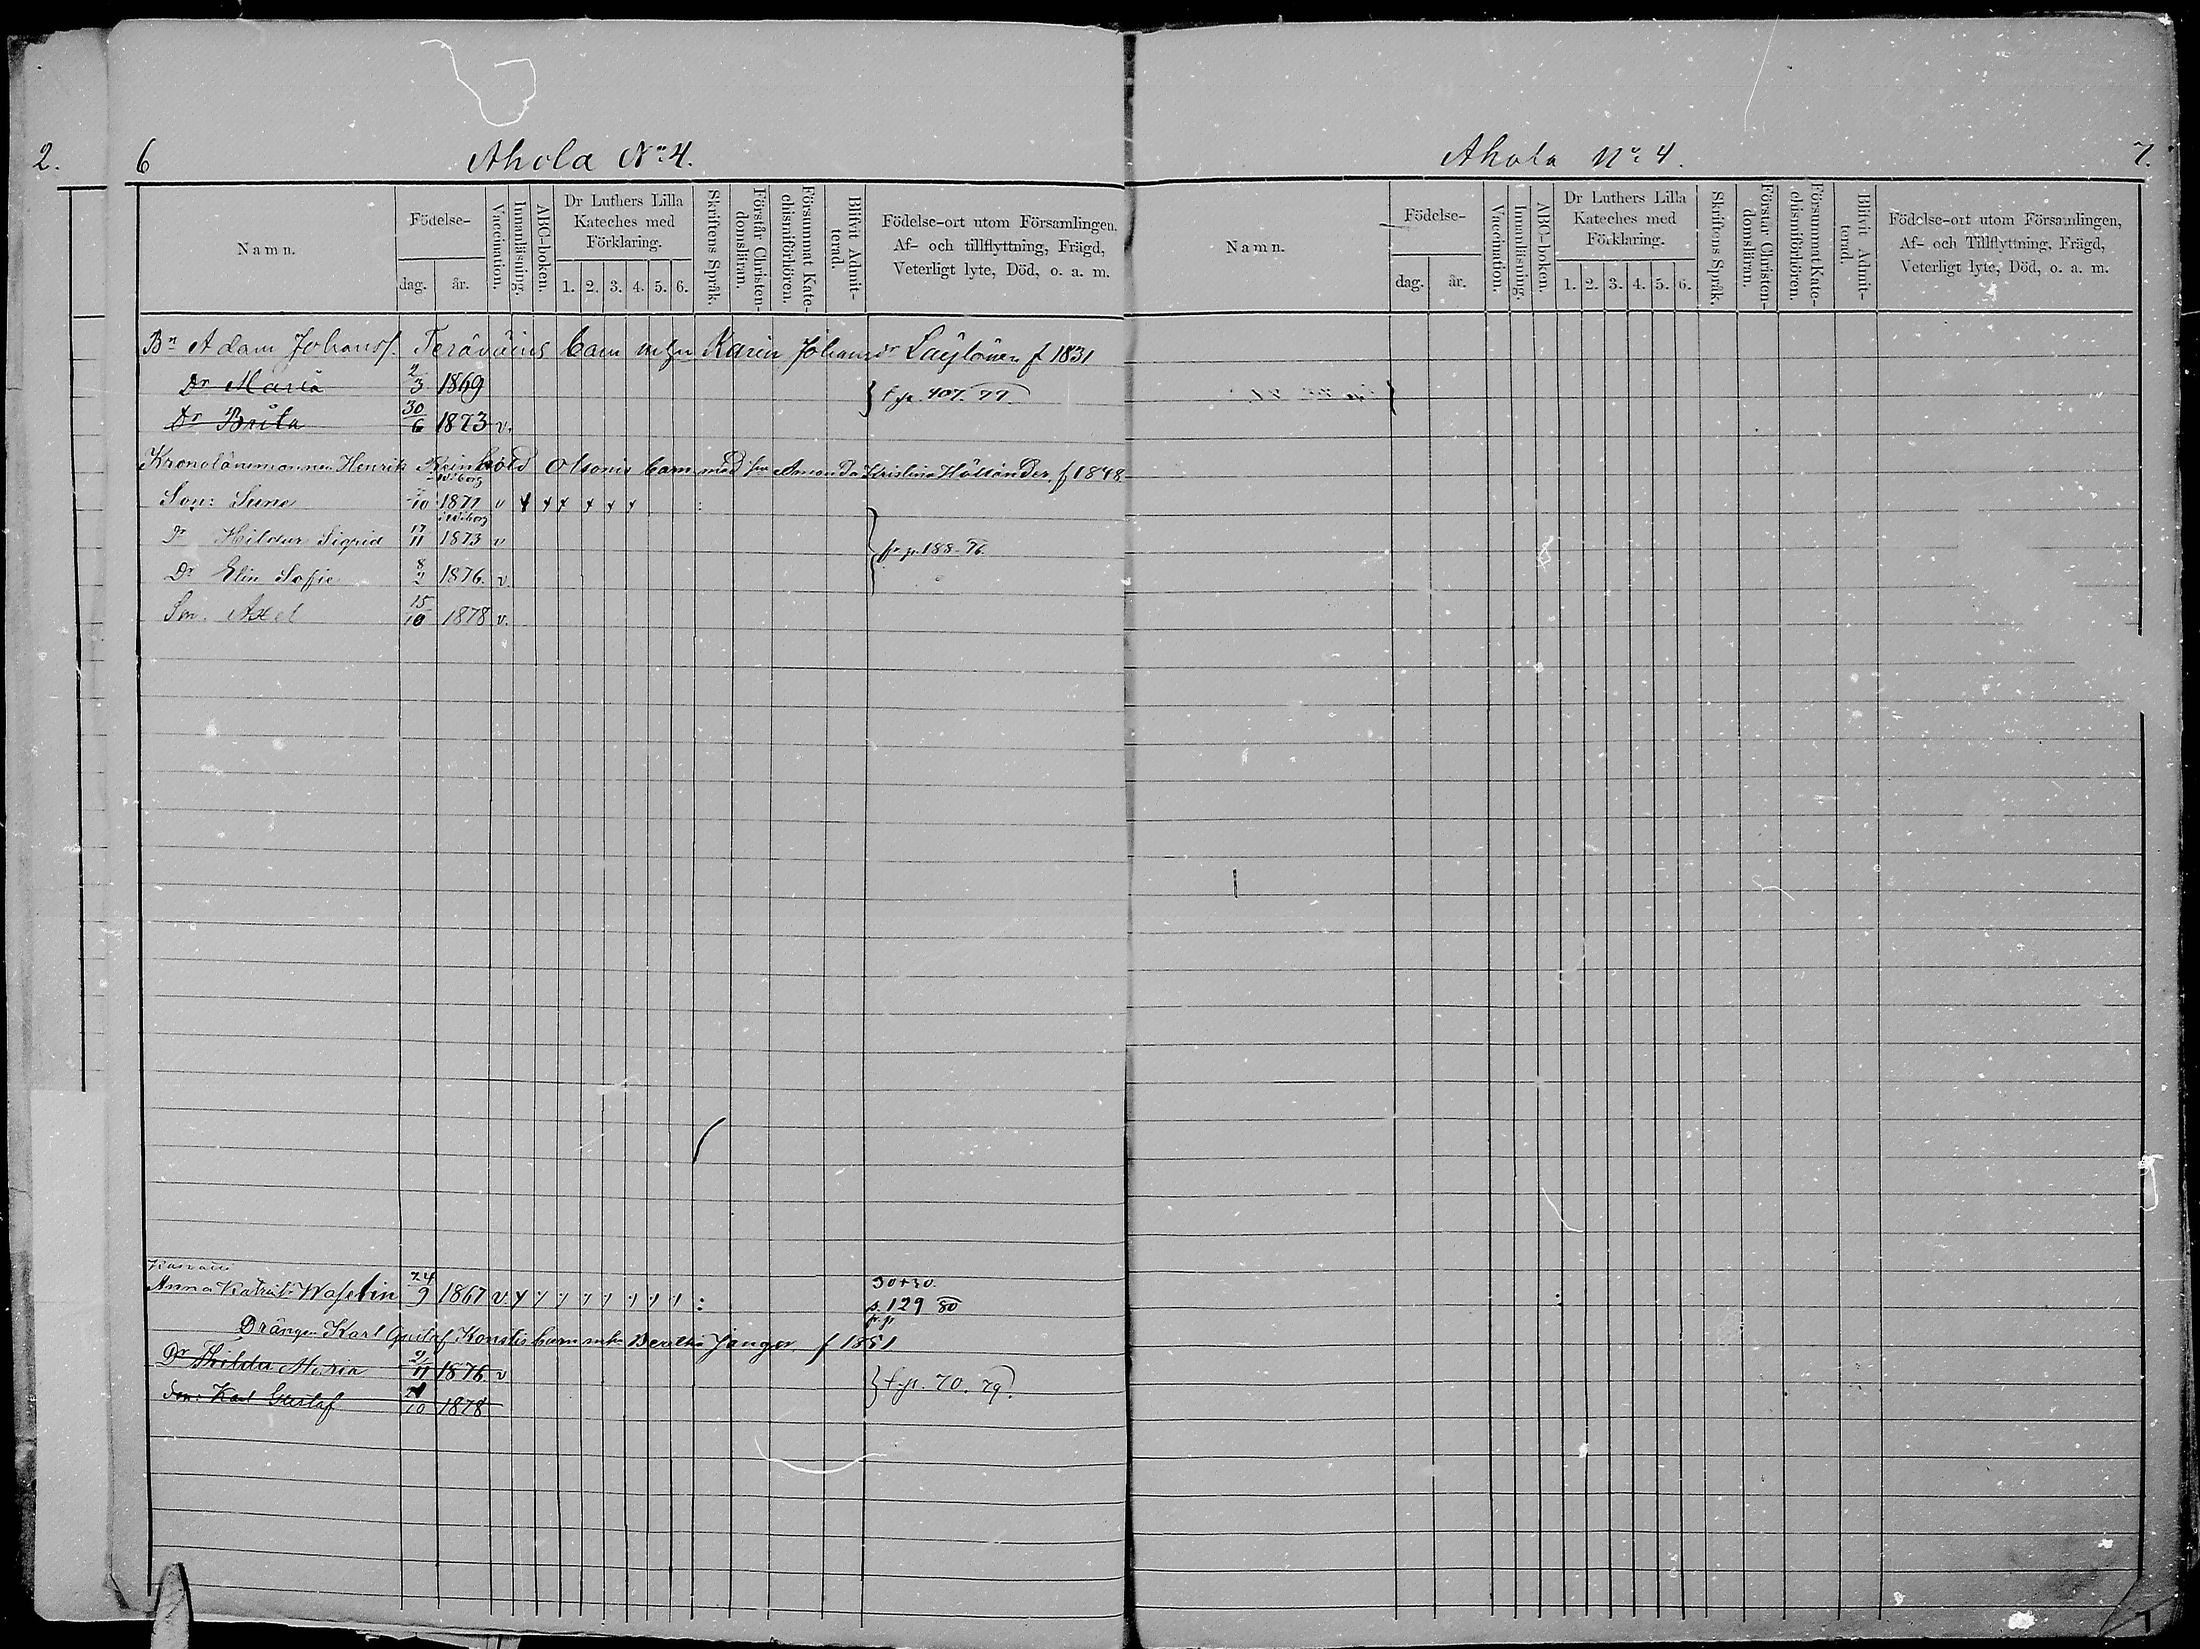 2.
6
Ahola No 4.
Namn.
Födelse-
dag.
år.
Vaccination.
Innanläsning.
ABC-boken.
Dr Luthers Lilla Kateches med Förklaring.
1. 2. 3. 4. 5. 6.
Skriftens Språk.
Förstår Christendomsläran.
Försummat Katechismiförhören.
Blifvit Admitterad.
Födelse-ort utom Församlingen,
Af- och tillflyttning, Frägd,
Veterligt lyte, Död, o. a. m.
Bn Adam Johanss. Teräväins barn m hu Karin Johansdr f 1831
Dr Maria 2/3 1869 t. p. 407. 77.
Dr Brita 30/6 1873 v.
Kronolänsmannen Henrik Reinhold Olsonis barn med hu Amanda Kristina Hölländer, f 1848
Wiborg
Son: Sune /10 1871 v
i Wiborg
Dr Hildur Sigrid 17/11 1873 v fr p. 188-76.
Dr Elin Sofie 8/2 1876. v.
Son. Axel 15/10 1878 v.
Anna Katrin: 24/9 1867 v
p. 129 80
Drängen Karl Gustaf Konstis barn m hu f 1851
Dr Hilda Maria 2/11 1876 v t. p. 70. 79.
Son: Karl Gustaf /10 1878
Ahola No 4.
7.
Namn.
Födelse-
dag.
år.
Vaccination.
Innanläsning.
ABC-boken.
Dr Luthers Lilla Kateches med Förklaring.
1. 2. 3. 4. 5. 6.
Skriftens Språk.
Förstår Christendomsläran.
Försummat Katechismiförhören.
Blifvit Admitterad.
Födelse-ort utom Församlingen,
Af- och Tillflyttning, Frägd,
Veterligt lyte, Död, o. a. m.